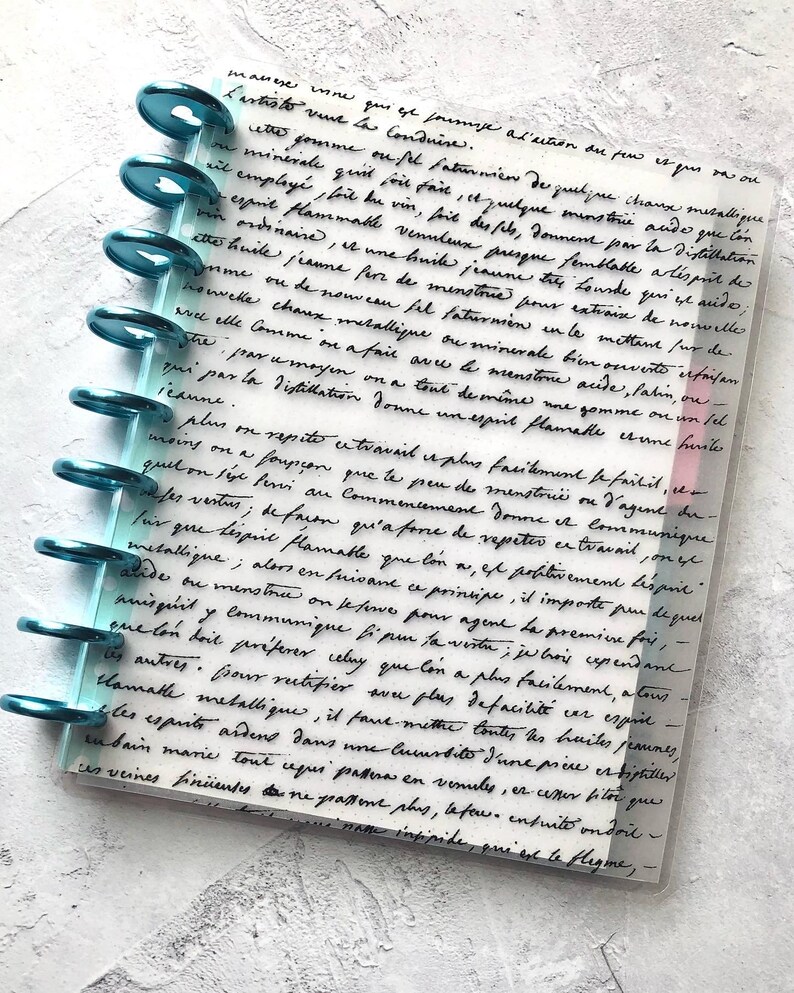 qui est soumise a l'action du feu et qui va ou
L'artiste veut la Conduire.
cette gomme ou sel saturnien de quelque chaux metallique
ou minerale qu'il soit fait, et quelque menstruë acide que lón
ait employé, soit du vin, soit des sels, donnent par la distillation
esprit flammable venuleux presque semblable a lésprit de
vin ordinaire, et une huile jeaune tres Lourde qui est acide;
cette huile jeaune sert de menstruë pour extraire de nouvelle
gomme ou de nouveau sel saturnien en le mettant sur de
nouvelle chaux metallique ou minerale bien ouverte et faisan
avec elle Comme on a fait avec le menstruë acide,
par ce moyen on a tout de même une gomme ou un sel
qui par la distillation donne un esprit flamable et une huile
jeaune.
plus on repete ce travail et plus facilement se fait il, et
moins on a soupçon que le peu de menstruë ou d'agent du-
quel on s'est servi au Commencement donne et Communique
ses vertus; de facon qu'a force de repeter ce travail, on est
sur que lésprit flamable que lón a, est positivement lésprit
metallique; alors en suivant ce principe, il importe peu de quel
acide ou menstruë on se serve pour agent La premiere fois, -
puisqu'il y Communique si peu sa vertu; je crois cependant
que lón doit préferer celuy que lón a plus facilement, a tous -
les autres. pour rectifier avec plus de facilité cet esprit -
flamable metallique, il faut mettre toutes les huiles jeaunes,
et les esprits ardens dans une Cucurbite d'une piece et distiller
au bain marie tout ce qui passera en venules, et cesser sitôt que
ces veines sinüeuses ne passent plus, le feu. ensuite on doit -
insipide, qui est le flegme, -